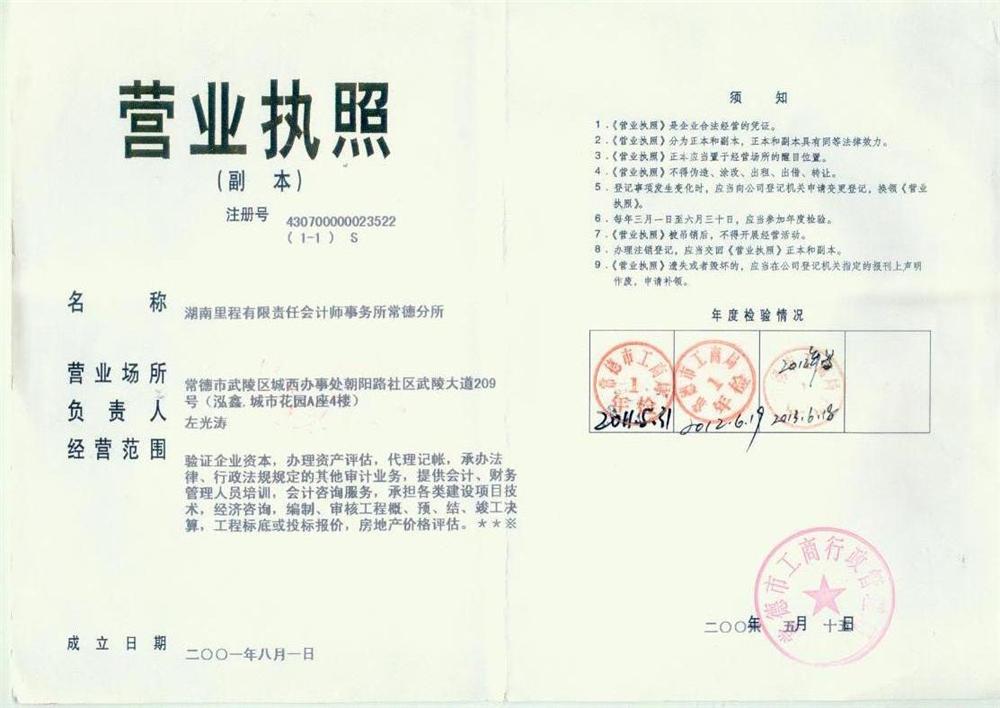 营业执照
（副 本）
注册号 430700000023522
（1-1） S
名 称 湖南里程有限责任会计师事务所常德分所
营业场所 常德市武陵区城西办事处朝阳路社区武陵大道209
号（泓鑫.城市花园A座4楼）
负责人 左光涛
经营范围 验证企业资本，办理资产评估，代理记帐，承办法
律、行政法规规定的其他审计业务，提供会计、财务
管理人员培训，会计咨询服务，承担各类建设项目技
术，经济咨询，编制、审核工程概、预、结、竣工决
算，工程标底或投标报价，房地产价格评估。★★※
成立日期 二〇〇一年八月一日
须 知
1．《营业执照》是企业合法经营的凭证。
2．《营业执照》分为正本和副本，正本和副本具有同等法律效力。
3．《营业执照》正本应当置于经营场所的醒目位置。
4．《营业执照》不得伪造、涂改、出租、出借、转让。
5．登记事项发生变化时，应当向公司登记机关申请变更登记，换领《营业
执照》。
6．每年三月一日至六月三十日，应当参加年度检验。
7．《营业执照》被吊销后，不得开展经营活动。
8．办理注销登记，应当交回《营业执照》正本和副本。
9．《营业执照》遗失或者毁坏的，应当在公司登记机关指定的报刊上声明
作废，申请补领。
年度检验情况
常德市工商局
1
年检
2011.5.31
常德市工商局
1
年检
2012.6.19
2012
2013.6.18
常德市工商行政管
二〇〇 年 五月 十 日